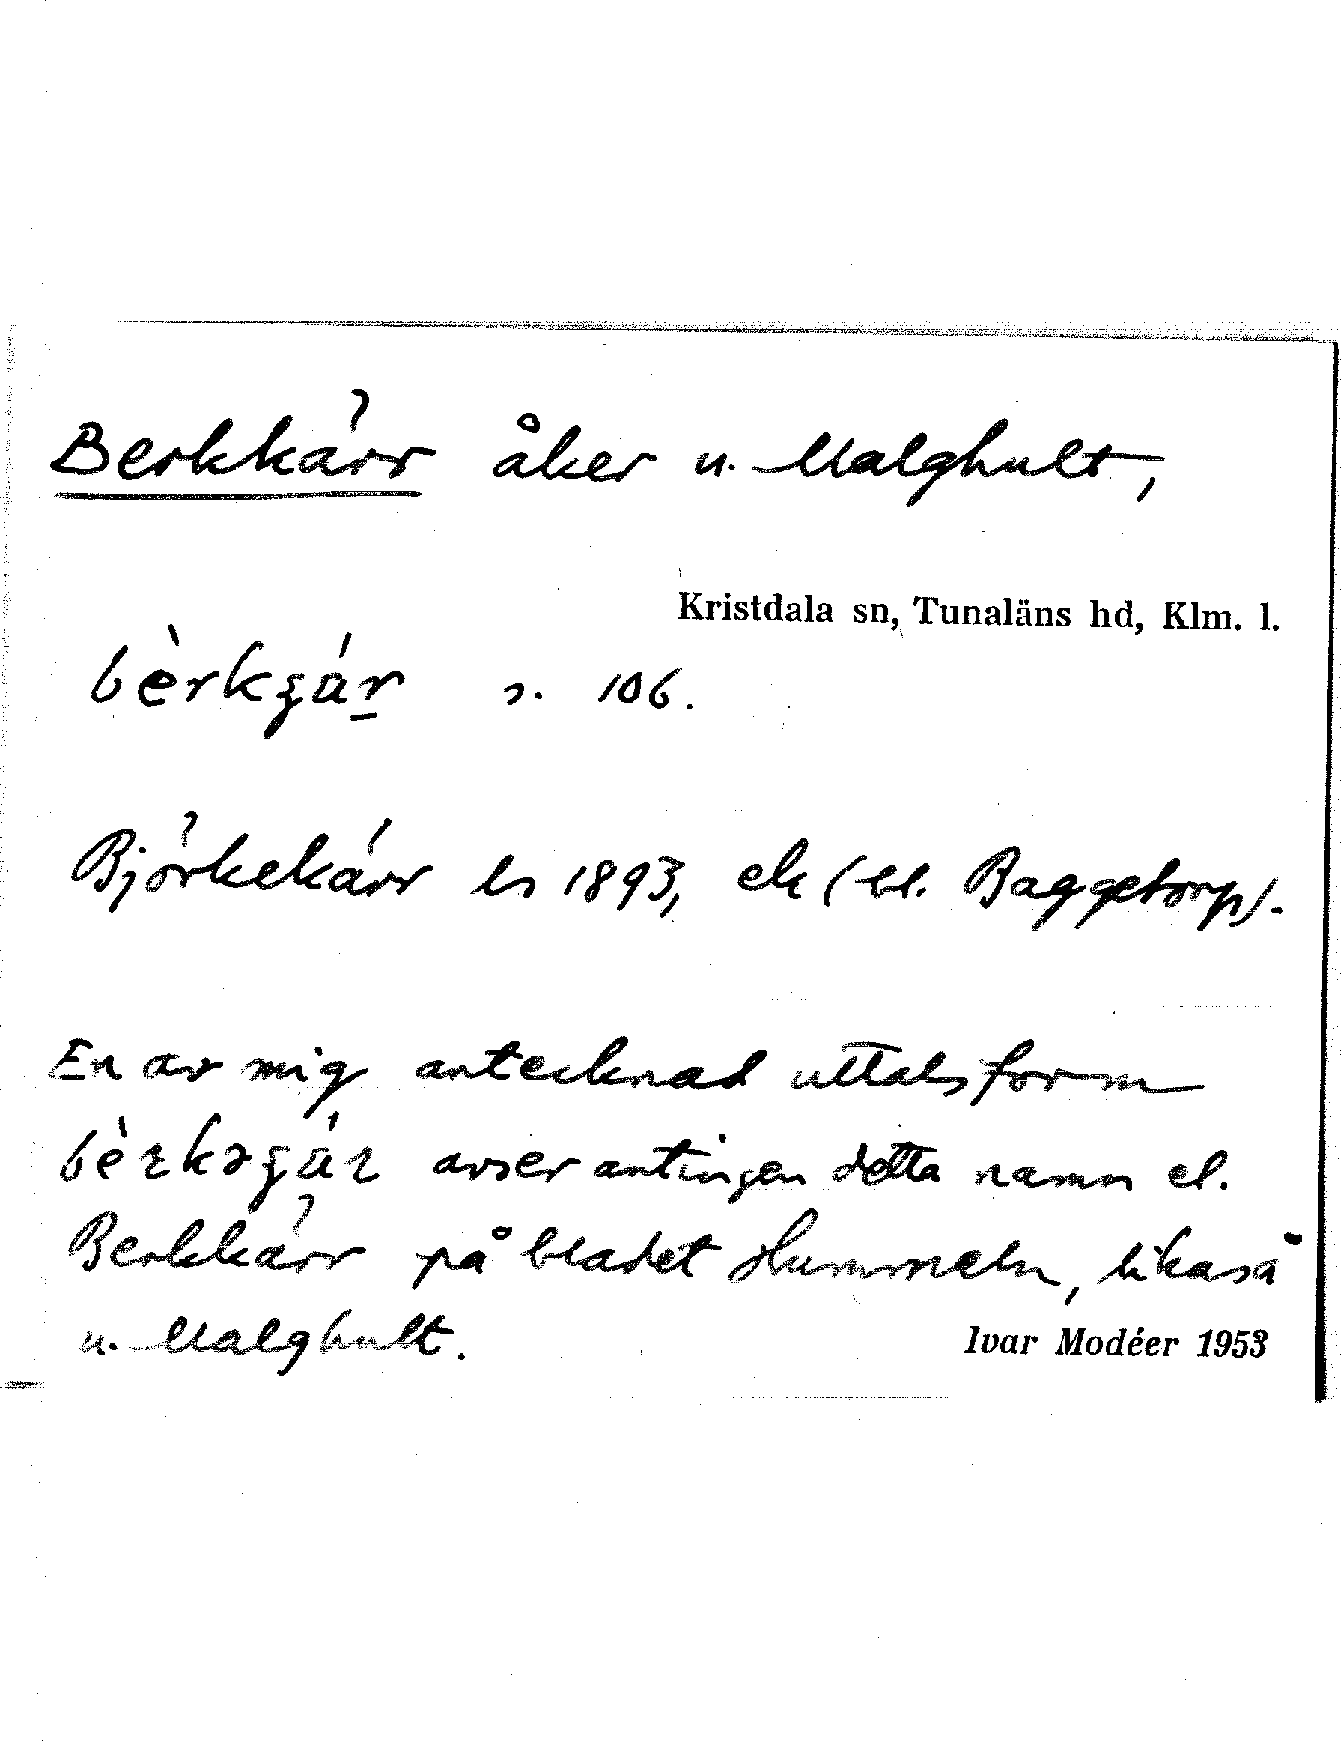 Berkkärr åker u. Malghult,
Kristdala sn, Tunaläns hd, Klm. l.
bèrkɟár s. 106.
Björkekärr ls 1893, ek (bl. Baggetorp).
En av mig antecknad uttalsform
bèrkəɟár avser antingen detta namn el.
Berkkärr på bladet Hummeln, likaså
u. Malghult.
Ivar Modéer 1953